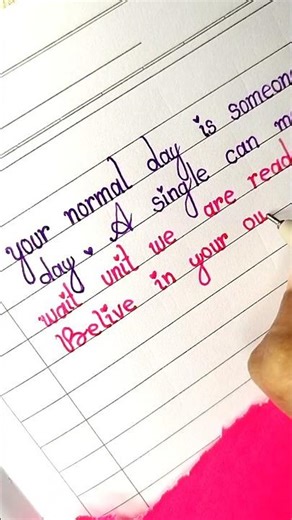 your normal day is someon
day. A single can m
wait unit we are read
Belive in your ou